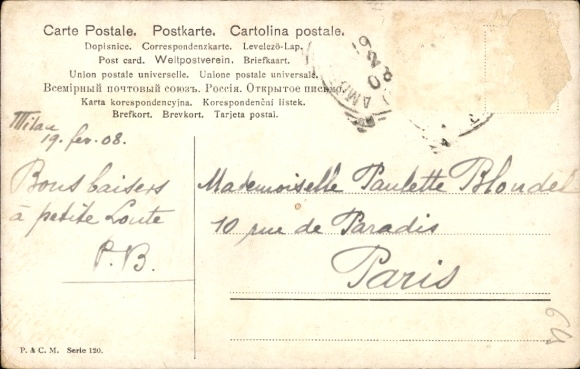 Carte Postale. Postkarte. Cartolina postale.
Dopisnice. Correspondenzkarte. Levelező-Lap.
Post card. Weltpostverein. Briefkaart.
Union postale universelle. Unione postale universale.
Всемірный почтовый союзъ. Россія. Открытое письмо.
Karta korespondencyjna. Korespondenční lístek.
Brefkort. Brevkort. Tarjeta postal.
19
2
08
Milan
19. fév. 08.
Bons baisers
à petite Loute
P. B.
Mademoiselle Paulette Blondel
10 rue de Paradis
Paris
P. & C. M. Serie 120.